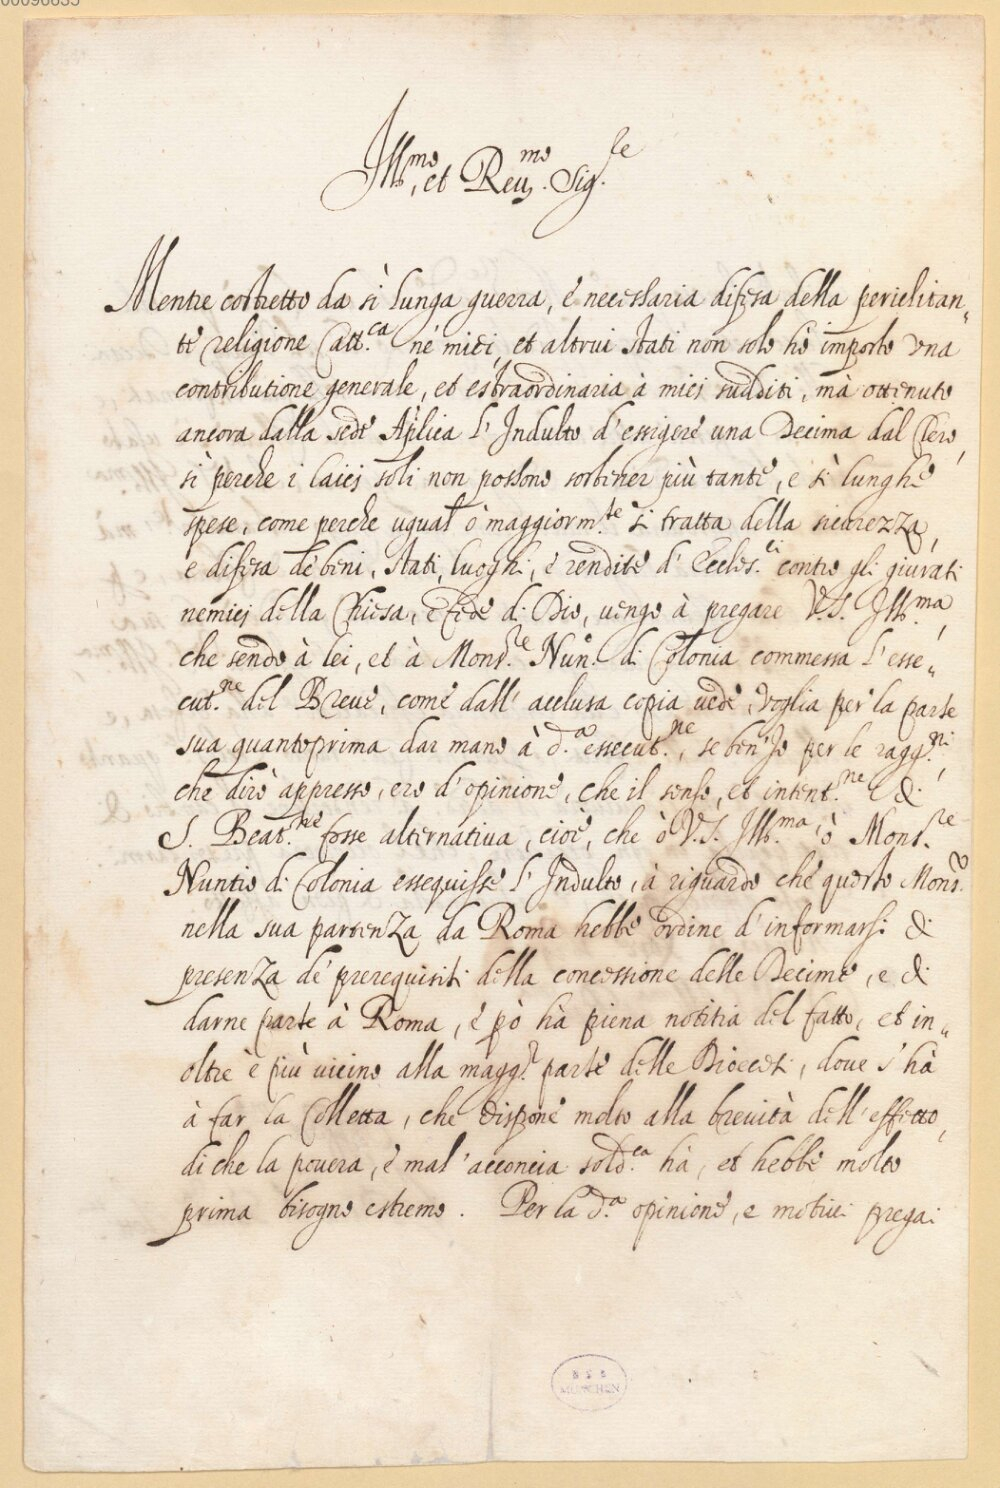 00096635
Ill.mo, et Reu.mo Sig.re
Mentre costretto da sì lunga guerra, è necessaria difesa della periclitan„
te religione Catt.ca né miei, et altrui Stati non solo hò imposto una
contributione generale, et estraordinaria à miei sudditi, mà ottenuto
ancora dalla sede Aplica l'Indulto d'essigere una Decima dal Clero,
sì perche i laici soli non possono sostener più tante, e sì lunghe
spese, come perche ugual ò maggiorm.te si tratta della sicurezza,
e difesa de beni, Stati, luoghi, è rendite d'Eccles.ci contro gli giurati
nemici della Chiesa, è fede di Dio, uengo à pregare V.S. Ill.ma,
che sendo à lei, et à Mons.re Nun.o di Colonia commessa l'esse„
cut.ne del Breue, come dall'acclusa copia uede, voglia per la parte
sua quantoprima dar mano à d.a essecut.ne, se ben'Io per le ragg.ni
che dirò appresso, ero d'opinione, che il senso, et intent.ne di
S. Beat.ne fosse alternatiua, cioè, che ò V.S. Ill.ma, ò Mons.re
Nuntio di Colonia essequisse l'Indulto, à riguardo che questo Mons.r
nella sua partenza da Roma hebbe ordine d'informarsi di
presenza de prerequisiti della concessione delle Decime, e di
darne parte à Roma, è pò hà piena notitia del fatto, et in„
oltre è più uicino alla magg.r parte delle Diocesi, doue s'hà
à far la Colletta, che dispone molto alla breuità dell'effetto,
di che la pouera, è mal'acconcia sold.ca hà, et hebbe molto
prima bisogno estremo. Per la d.a opinione, e motiui pregai
BSB
MÜNCHEN